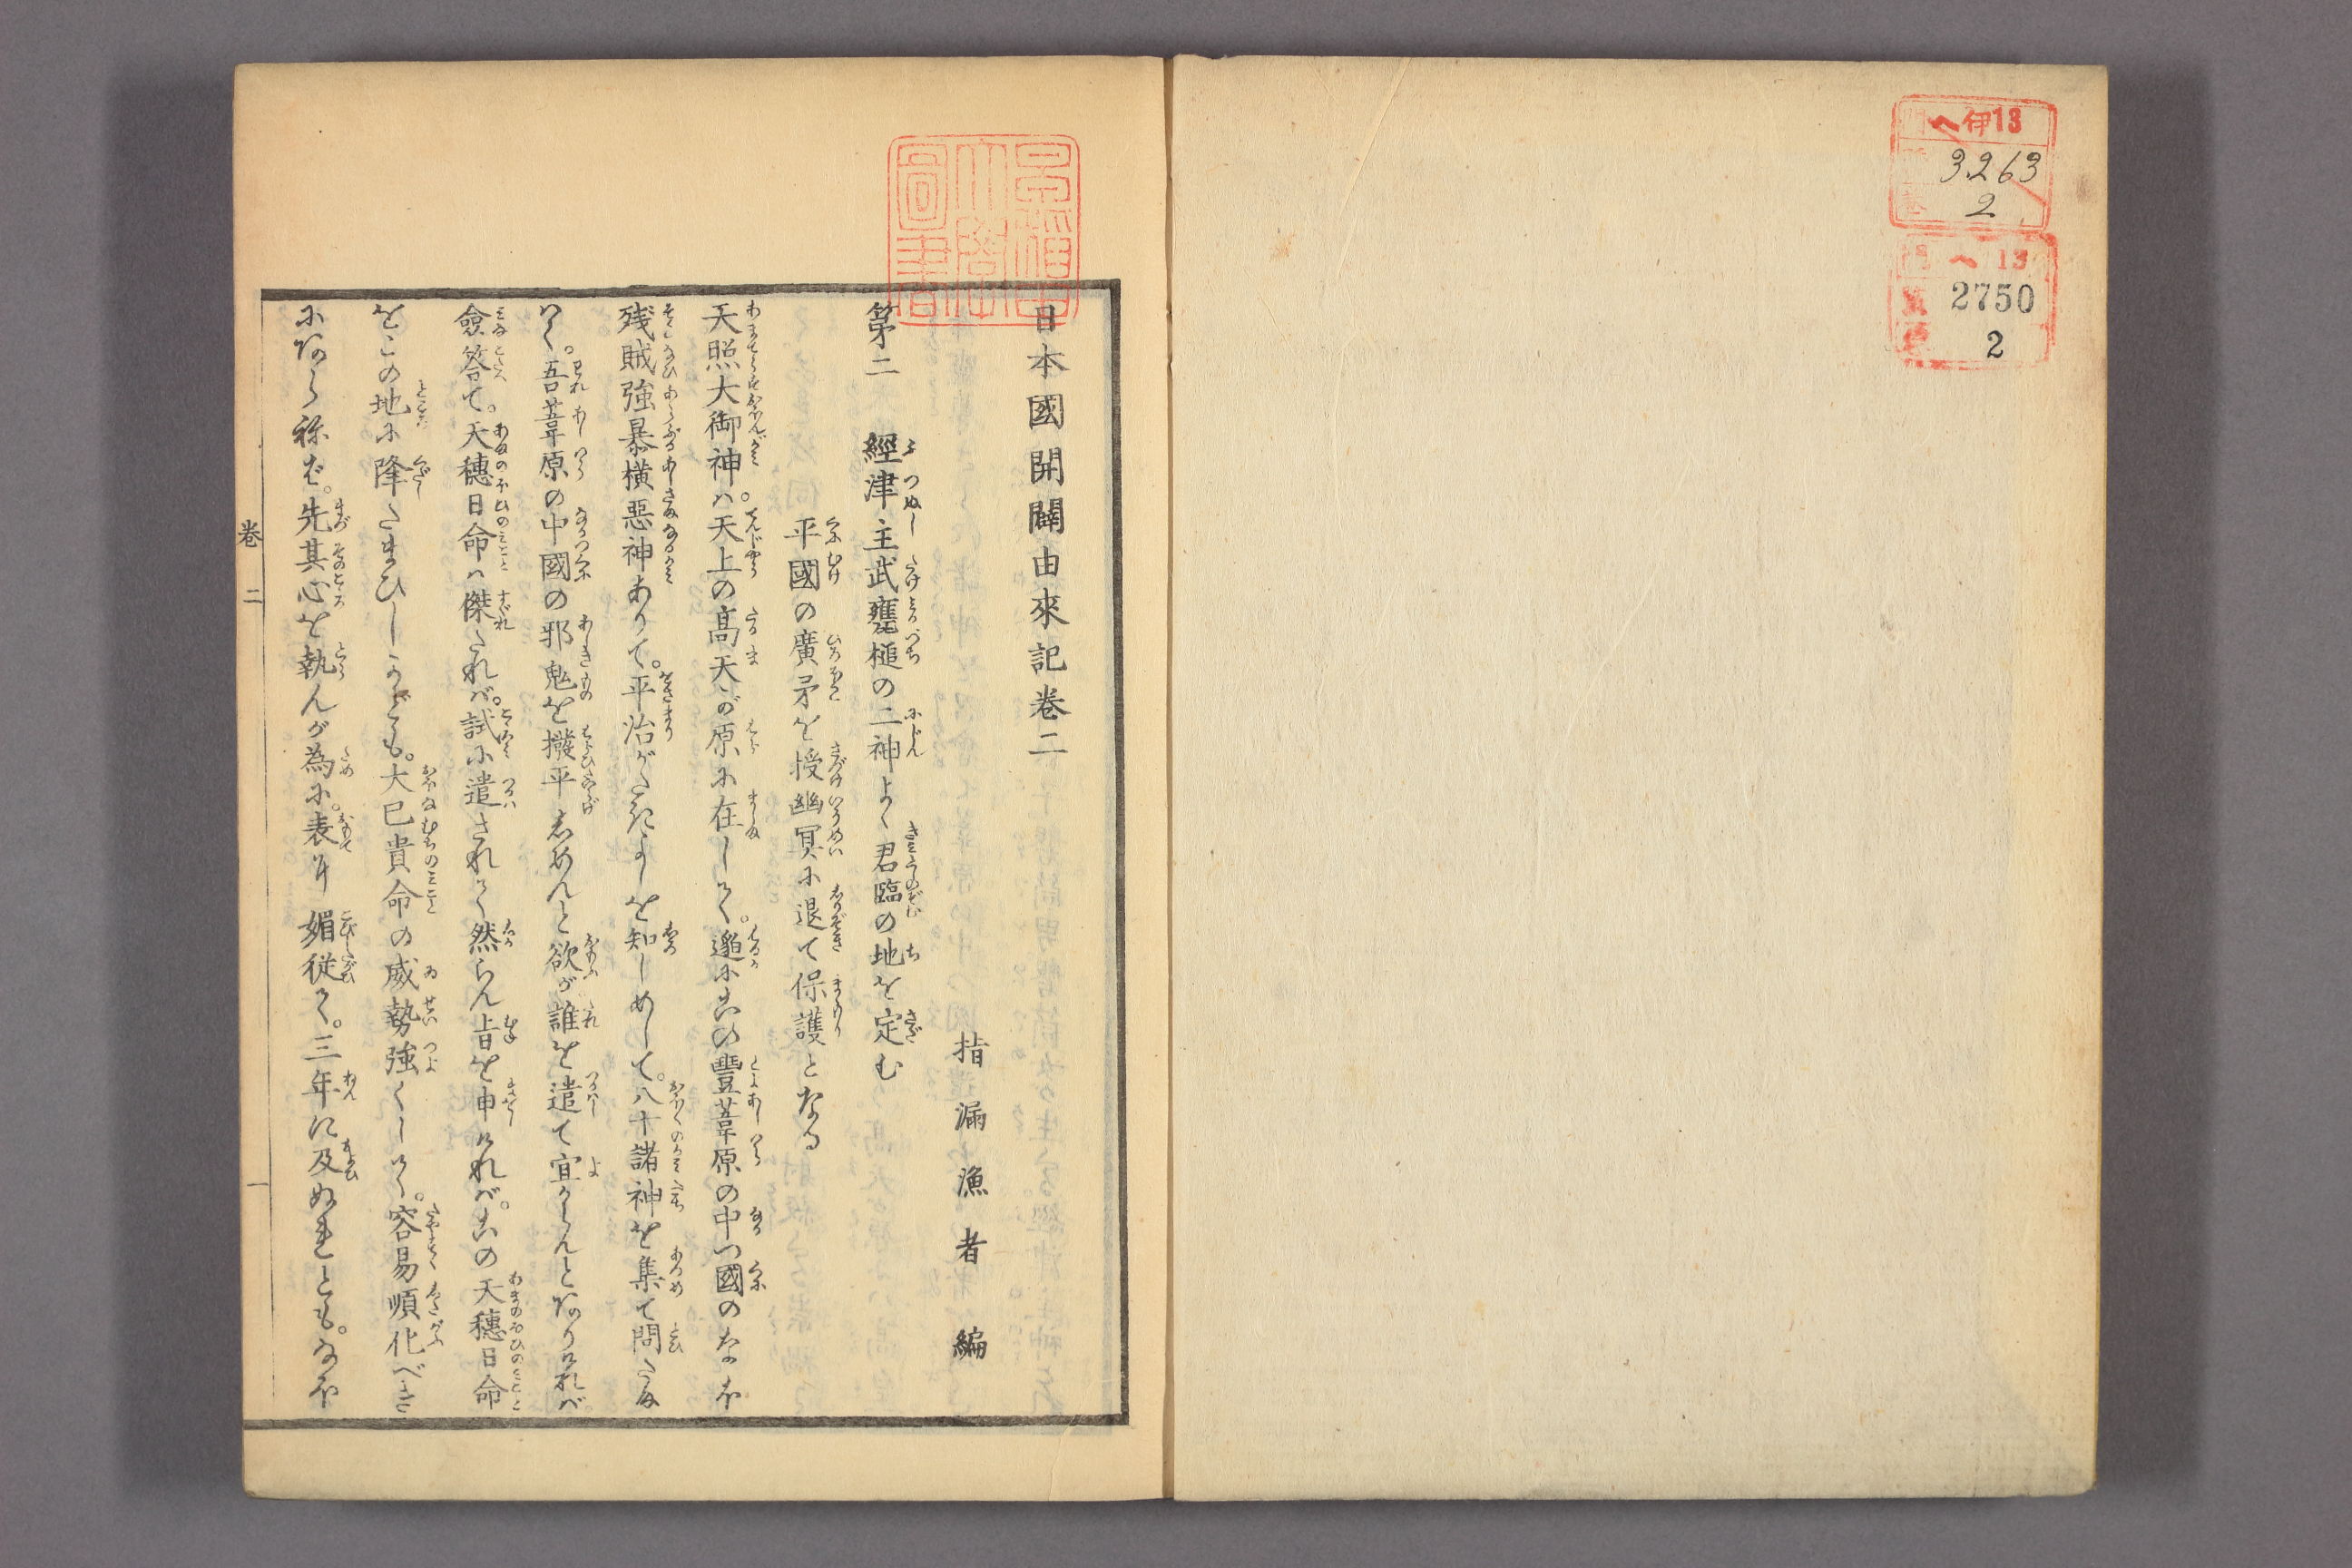 伊13
3263
2
ヘ 13
2750
2
日本國開闢由來記巻二
指漏漁者編
第二 經津主武甕槌の二神よく君臨の地を定む
平國の廣矛を授幽冥に退て保護となる
天照大御神。ハ天上の高天が原に在して。遥に
豐葦原の中つ國のなほ
残賊強暴横惡神ありて。平治がたきよしを知しめして。八十諸神を集て問たま
はく。吾葦原の中國の邪鬼を撥平しめんと欲が誰を遣て宜からんとありければ
僉答て。天穗日命ハ傑たれバ。試に遣されて然らん旨を申けれバ。この天穗日命
をこの地に降したまひしかども。大己貴命の威勢強くして。容易順化べき
にあらねば。先其心を執んが為に。表に媚従て。三年に及ぬれとも。なほ
巻二
一